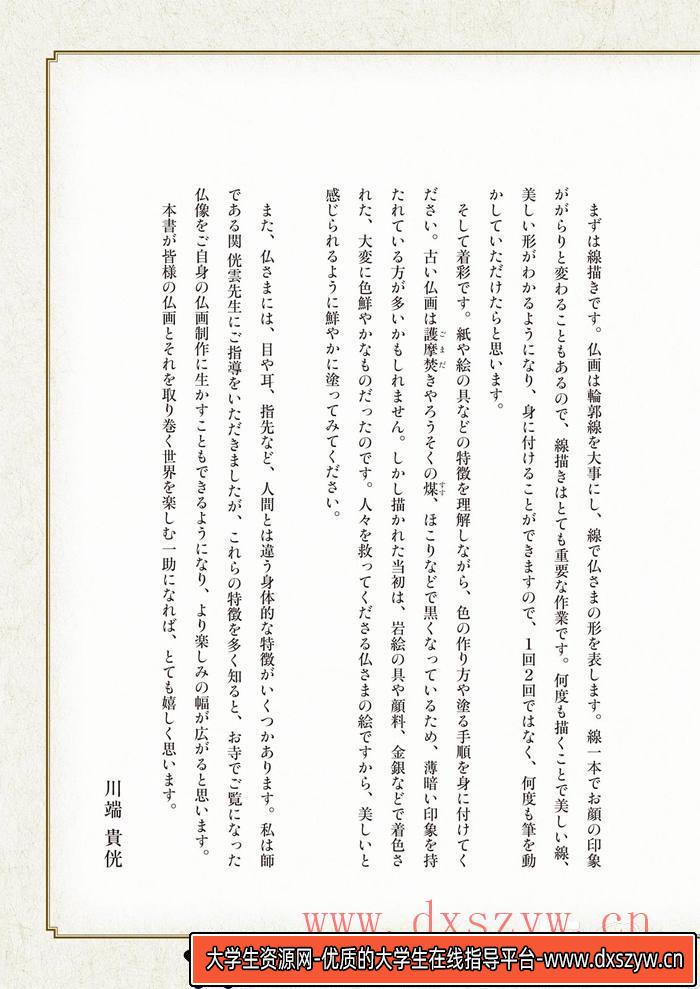 まずは線描きです。仏画は輪郭線を大事にし、線で仏さまの形を表します。線一本でお顔の印象
ががらりと変わることもあるので、線描きはとても重要な作業です。何度も描くことで美しい線、
美しい形がわかるようになり、身に付けることができますので、1回2回ではなく、何度も筆を動
かしていただけたらと思います。
そして着彩です。紙や絵の具などの特徴を理解しながら、色の作り方や塗る手順を身に付けてく
ださい。古い仏画は護摩焚きやろうそくの煤、ほこりなどで黒くなっているため、薄暗い印象を持
ごまだ
すす
たれている方が多いかもしれません。しかし描かれた当初は、岩絵の具や顔料、金銀などで着色さ
れた、大変に色鮮やかなものだったのです。人々を救ってくださる仏さまの絵ですから、美しいと
感じられるように鮮やかに塗ってみてください。
また、仏さまには、目や耳、指先など、人間とは違う身体的な特徴がいくつかあります。私は師
である関 侊雲先生にご指導をいただきましたが、これらの特徴を多く知ると、お寺でご覧になった
仏像をご自身の仏画制作に生かすこともできるようになり、より楽しみの幅が広がると思います。
本書が皆様の仏画とそれを取り巻く世界を楽しむ一助になれば、とても嬉しく思います。
川端 貴侊
www.dxszyw.cn
大学生资源网-优质的大学生在线指导平台-www.dxszyw.cn